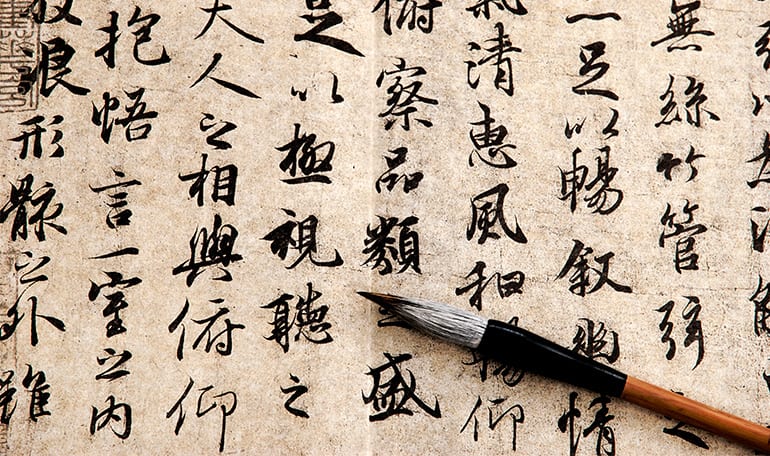 無絲竹管弦之
足以暢敘幽情
氣清惠風和暢仰
俯察品類之盛
足以極視聽之
夫人之相與俯仰
抱悟言一室之內
放浪形骸之外雖